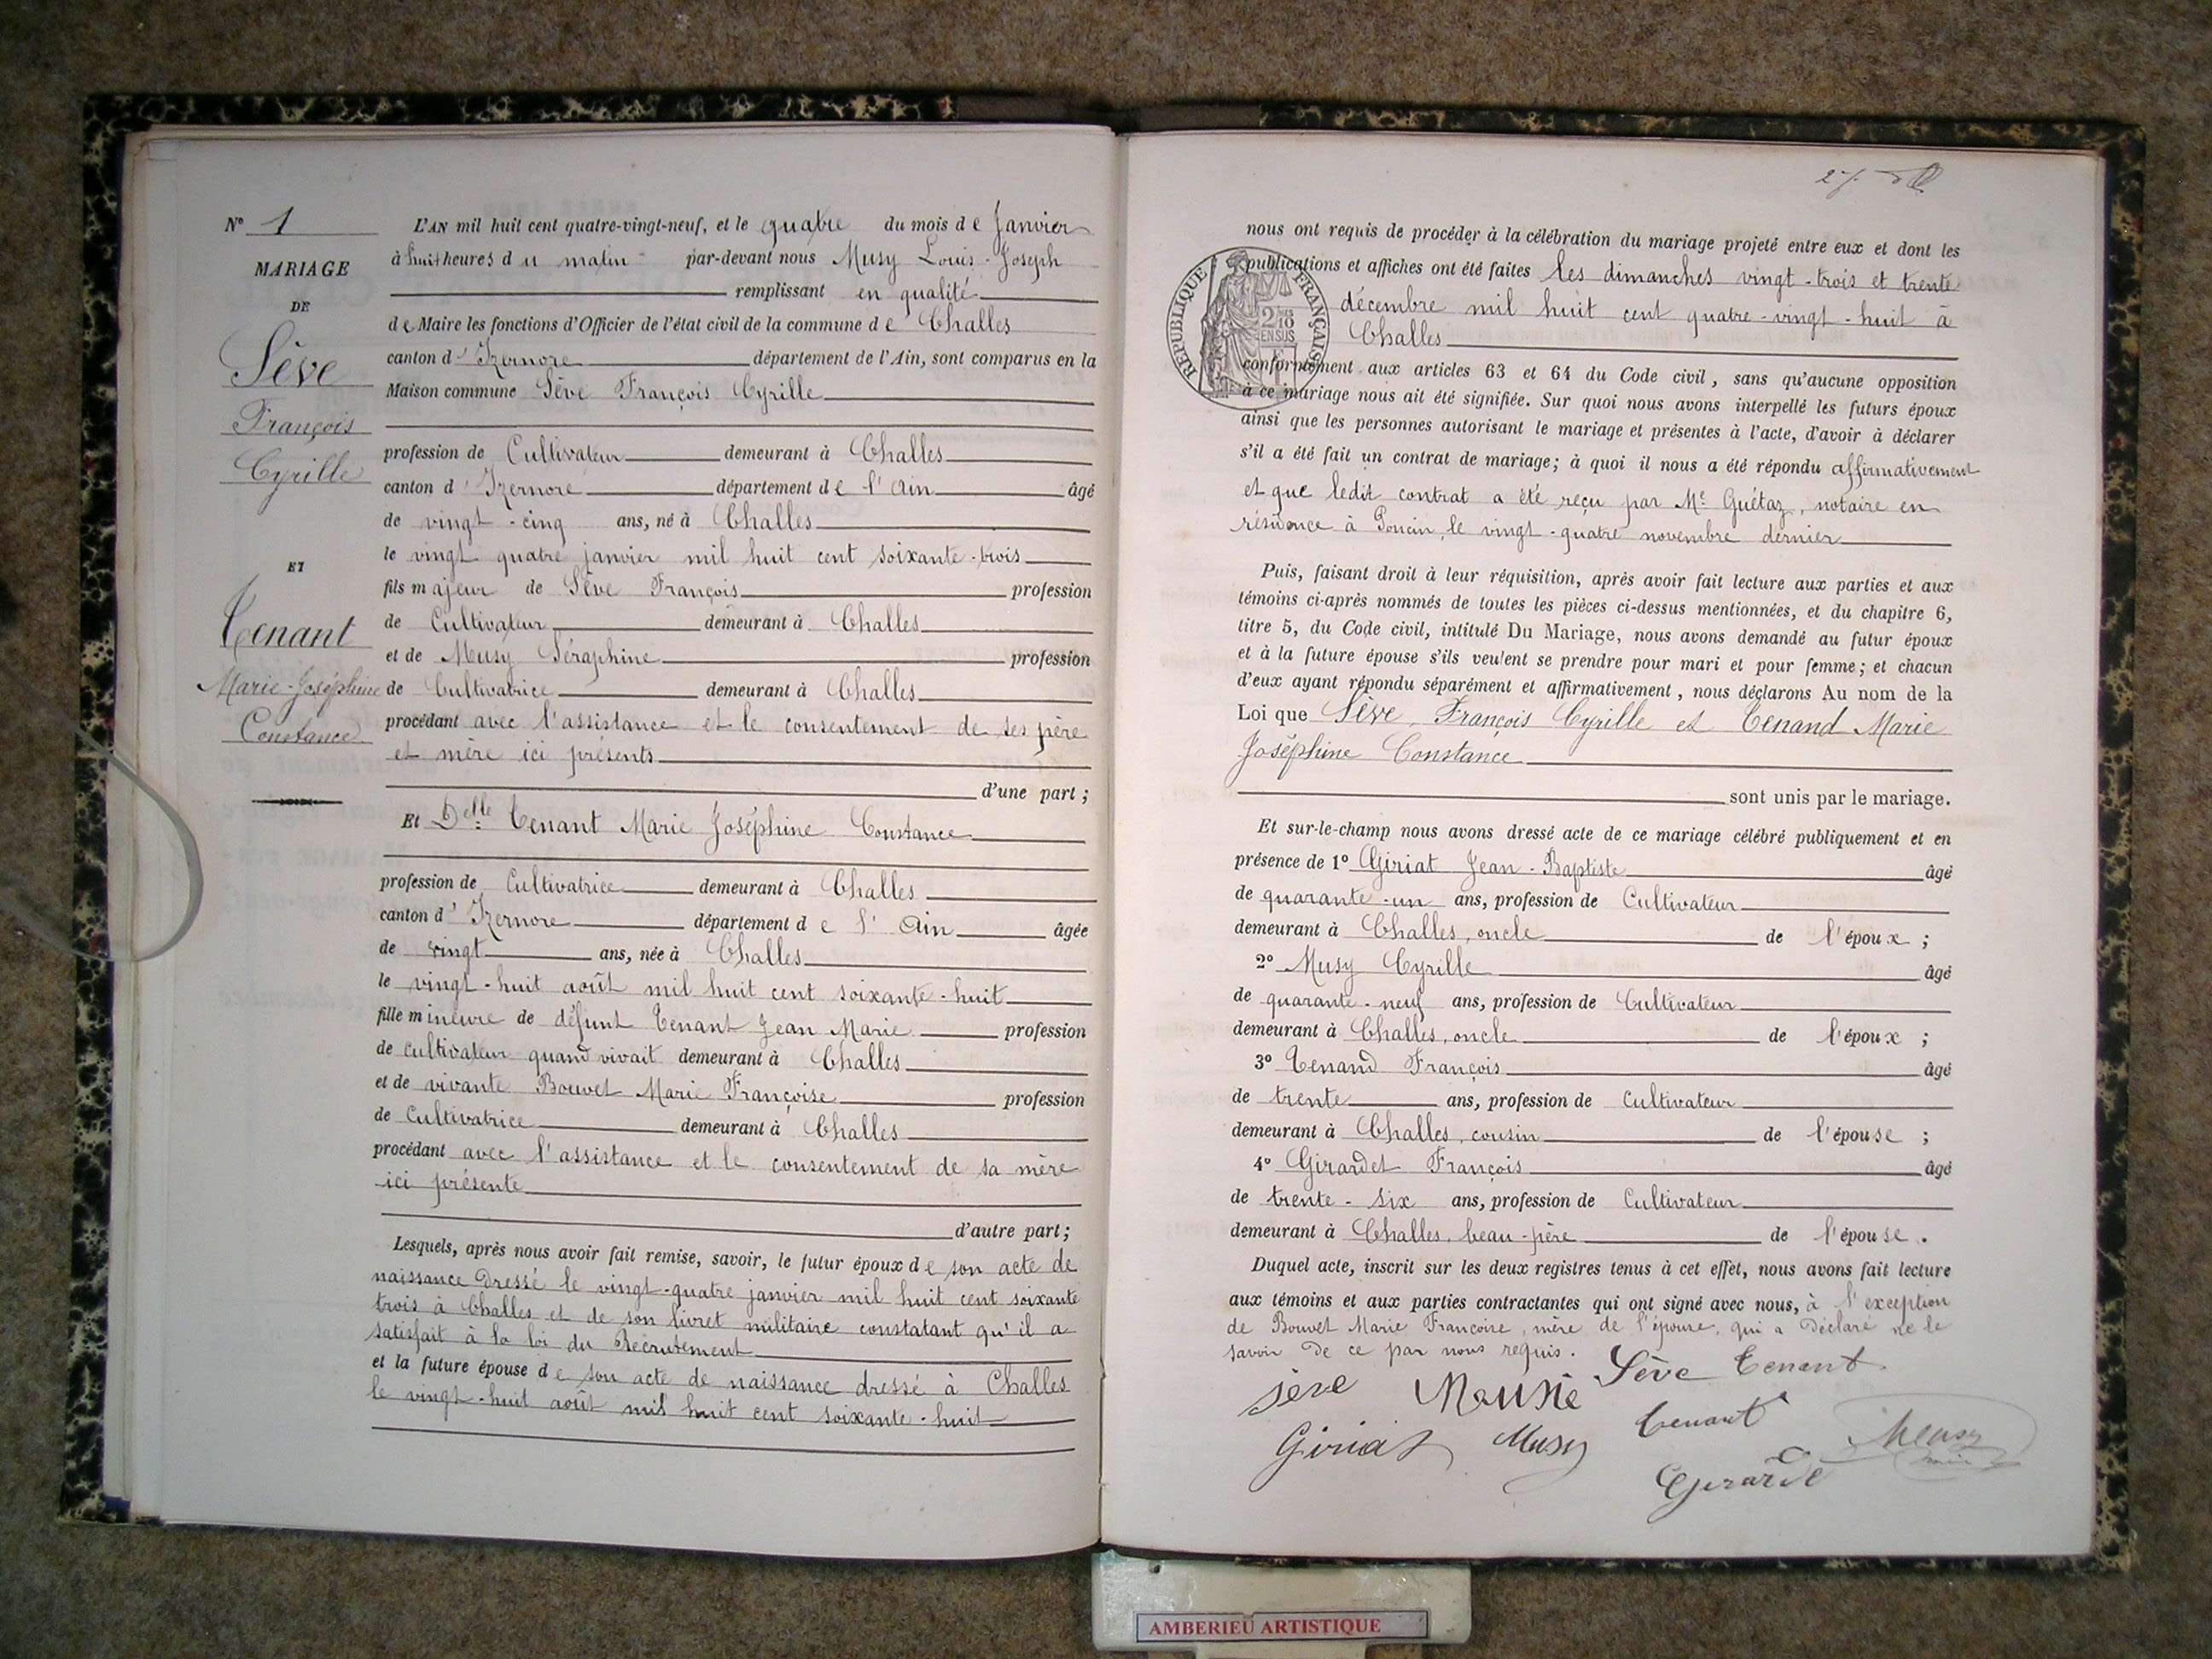 N° 1
MARIAGE
DE
Sève
François
Cyrille
ET
Tenant
Marie-Joséphine
Constance
L'AN mil huit cent quatre-vingt-neuf, et le quatre du mois de Janvier
à huit heures du matin par-devant nous Musy Louis-Joseph
remplissant en qualité
de Maire les fonctions d'Officier de l'état civil de la commune de Challes
canton d'Izernore département de l'Ain, sont comparus en la
Maison commune Sève François Cyrille
profession de Cultivateur demeurant à Challes
canton d'Izernore département de l'Ain âgé
de vingt-cinq ans, né à Challes
le vingt quatre janvier mil huit cent soixante-trois
fils majeur de Sève François profession
de Cultivateur demeurant à Challes
et de Musy Séraphine profession
de Cultivatrice demeurant à Challes
procédant avec l'assistance et le consentement de ses père
et mère ici présents
d'une part ;
Et Delle Tenant Marie Joséphine Constance
profession de Cultivatrice demeurant à Challes
canton d'Izernore département de l'Ain âgée
de vingt ans, née à Challes
le vingt-huit août mil huit cent soixante-huit
fille mineure de défunt Tenant Jean Marie profession
de cultivateur quand vivait demeurant à Challes
et de vivante Bouvet Marie Françoise profession
de Cultivatrice demeurant à Challes
procédant avec l'assistance et le consentement de sa mère
ici présente
d'autre part ;
Lesquels, après nous avoir fait remise, savoir, le futur époux de son acte de
naissance dressé le vingt-quatre janvier mil huit cent soixante
trois à Challes et de son livret militaire constatant qu'il a
satisfait à la loi du Recrutement
et la future épouse de son acte de naissance dressé à Challes
le vingt-huit août mil huit cent soixante-huit
nous ont requis de procéder à la célébration du mariage projeté entre eux et dont les
publications et affiches ont été faites les dimanches vingt-trois et trente
décembre mil huit cent quatre-vingt-huit à
Challes
REPUBLIQUE FRANÇAISE
2/10
EN SUS
conformément aux articles 63 et 64 du Code civil, sans qu'aucune opposition
à ce mariage nous ait été signifiée. Sur quoi nous avons interpellé les futurs époux
ainsi que les personnes autorisant le mariage et présentes à l'acte, d'avoir à déclarer
s'il a été fait un contrat de mariage; à quoi il nous a été répondu affirmativement
et que ledit contrat a été reçu par Me Guétaz, notaire en
résidence à Poncin, le vingt-quatre novembre dernier
Puis, faisant droit à leur réquisition, après avoir fait lecture aux parties et aux
témoins ci-après nommés de toutes les pièces ci-dessus mentionnées, et du chapitre 6,
titre 5, du Code civil, intitulé Du Mariage, nous avons demandé au futur époux
et à la future épouse s'ils veulent se prendre pour mari et pour femme; et chacun
d'eux ayant répondu séparément et affirmativement, nous déclarons Au nom de la
Loi que Sève, François Cyrille et Tenand Marie
Joséphine Constance
sont unis par le mariage.
Et sur-le-champ nous avons dressé acte de ce mariage célébré publiquement et en
présence de 1° Giriat Jean-Baptiste âgé
de quarante-un ans, profession de Cultivateur
demeurant à Challes, oncle de l'époux ;
2° Musy Cyrille âgé
de quarante-neuf ans, profession de Cultivateur
demeurant à Challes, oncle de l'époux ;
3° Tenand François âgé
de trente ans, profession de Cultivateur
demeurant à Challes, cousin de l'épouse ;
4° Girardet François âgé
de trente-six ans, profession de Cultivateur
demeurant à Challes, beau-père de l'épouse.
Duquel acte, inscrit sur les deux registres tenus à cet effet, nous avons fait lecture
aux témoins et aux parties contractantes qui ont signé avec nous, à l'exception
de Bouvet Marie Françoise, mère de l'épouse, qui a déclaré ne le
savoir de ce par nous requis.
Sève Tenant
sève Mousie
Tenant
Giriat Musy
Musy
maire
Girardé
AMBERIEU ARTISTIQUE